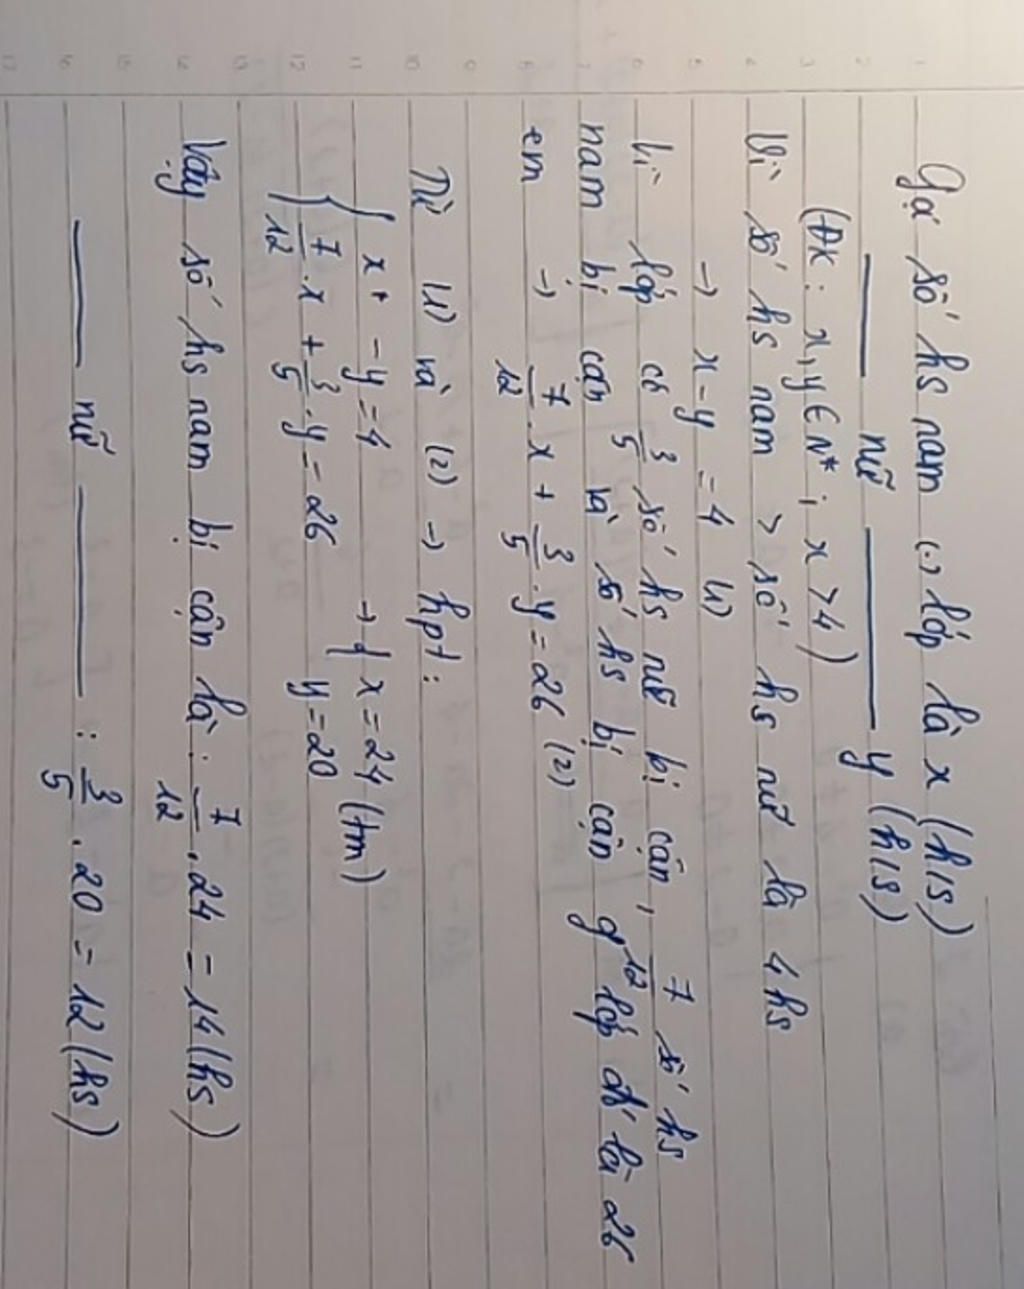 Gọi số hs nam (.) lớp là x (h/s)
—— nữ ———— y (h/s)
(ĐK: x, y ∈ N*; x > 4)
Vì số hs nam > số hs nữ là 4 hs
→ x - y = 4 (1)
Vì lớp có 3/5 số hs nữ bị cận, 7/12 số hs
nam bị cận và số hs bị cận ở lớp đó là 26
em → 7/12 . x + 3/5 . y = 26 (2)
Từ (1) và (2) → hpt:
{ x + - y = 4
7/12 . x + 3/5 . y = 26 → { x = 24 (tm)
y = 20
Vậy số hs nam bị cận là: 7/12 . 24 = 14 (hs)
—— nữ ———— : 3/5 . 20 = 12 (hs)
1 2 3 4 5 6 7 8 9 10 11 12 13 14 15 16 17